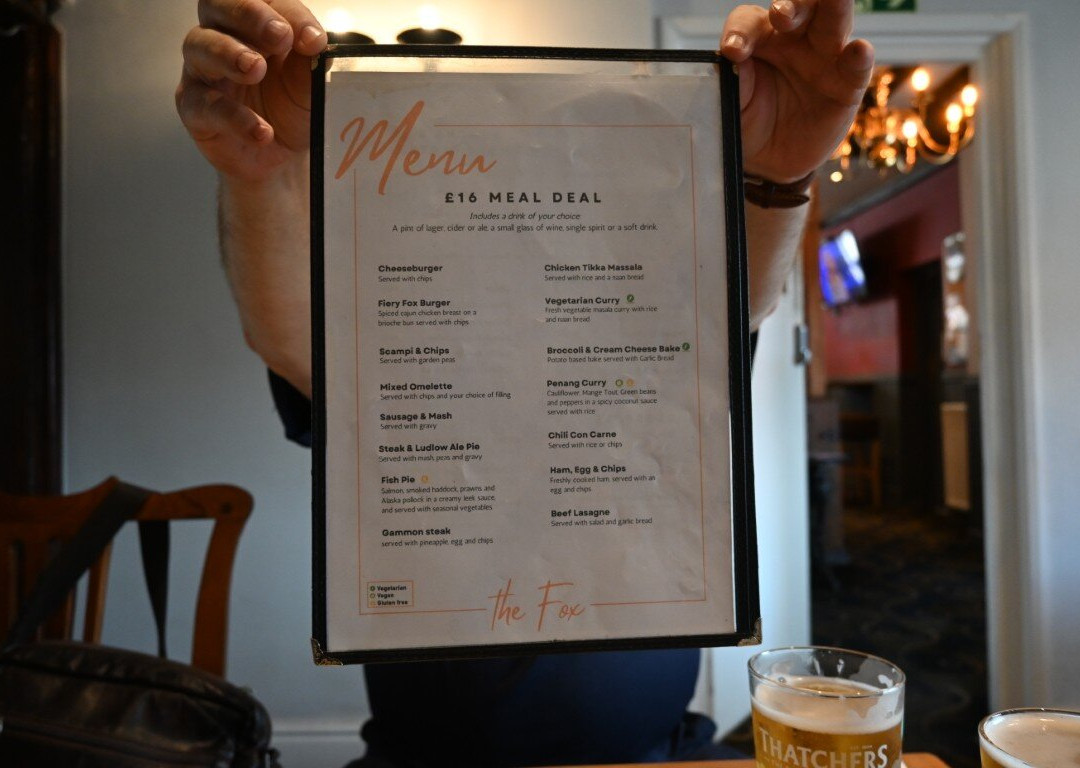 Menu
£16 MEAL DEAL
Includes a drink of your choice:
A pint of lager, cider or ale, a small glass of wine, single spirit or a soft drink.
Cheeseburger
Served with chips
Fiery Fox Burger
Spiced cajun chicken breast on a
brioche bun served with chips
Scampi & Chips
Served with garden peas
Mixed Omelette
Served with chips and your choice of filling
Sausage & Mash
Served with gravy
Steak & Ludlow Ale Pie
Served with mash, peas and gravy
Fish Pie
Salmon, smoked haddock, prawns and
Alaska pollock in a creamy leek sauce,
and served with seasonal vegetables
Gammon steak
served with pineapple, egg and chips
Chicken Tikka Massala
Served with rice and a naan bread
Vegetarian Curry
Fresh vegetable masala curry with rice
and naan bread
Broccoli & Cream Cheese Bake
Potato based bake served with Garlic Bread
Penang Curry
Cauliflower, Mange Tout, Green beans
and peppers in a spicy coconut sauce
served with rice
Chili Con Carne
Served with rice or chips
Ham, Egg & Chips
Freshly cooked ham, served with an
egg and chips
Beef Lasagne
Served with salad and garlic bread
Vegetarian
Vegan
Gluten free
the Fox
THATCHERS